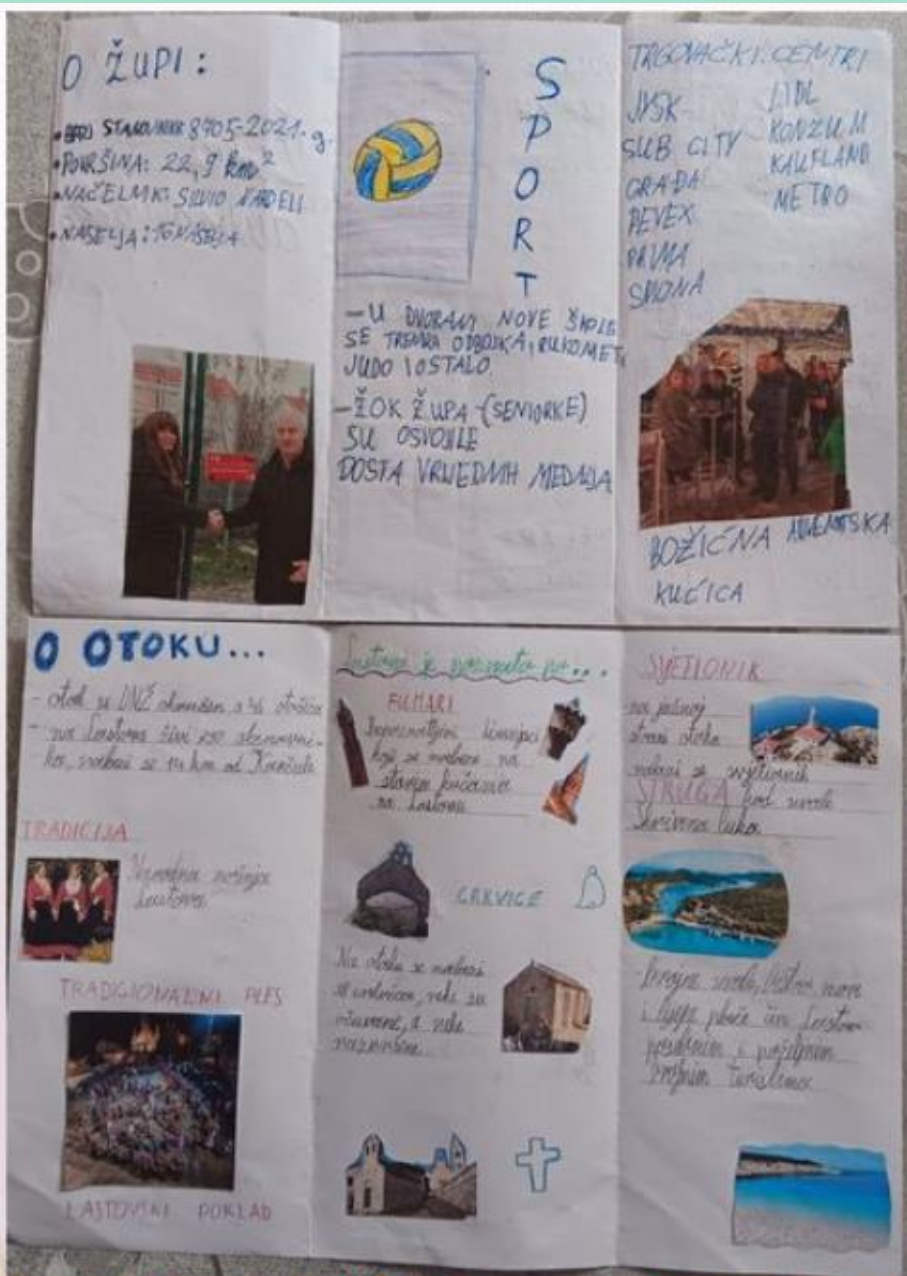 O ŽUPI:
• BROJ STANOVNIKA 8705-2021.g.
• POVRŠINA: 22,9 km²
• NAČELNIK: SILVIO NARDELI
• NASELJA:
SPORT
- U DVORANI NOVE ŠKOLE
SE TRENIRA ODBOJKA, RUKOMET,
JUDO I OSTALO.
- ŽOK ŽUPA (SENIORKE)
SU OSVOJILE
DOSTA VRIJEDNIH MEDALJA
TRGOVAČKI CENTRI
JYSK
SUB CITY
GRADA
PEVEX
LIDL
KONZUM
KAUFLAND
METRO
BOŽIĆNA ADVENTSKA
KUĆICA
O OTOKU...
- otok u DNŽ okružen s 46 otočića
- na Lastovu živi
TRADICIJA
Narodna nošnja
Lastova
TRADICIONALNI PLES
LASTOVSKI POKLAD
Lastovo je poznato po...
FUMARI
koji se nalaze na
starim kućama
na Lastovu
CRKVICE
Na otoku se nalazi
crkvica, neke su
očuvane, a neke
SVJETIONIK
na južnoj
strani otoka
nalazi se svjetionik
STRUGA kod uvale
Skrivena luka
- Brojne uvale, čisto more
i lijepe plaže čine Lastovo
posebnim i poželjnim
turistima